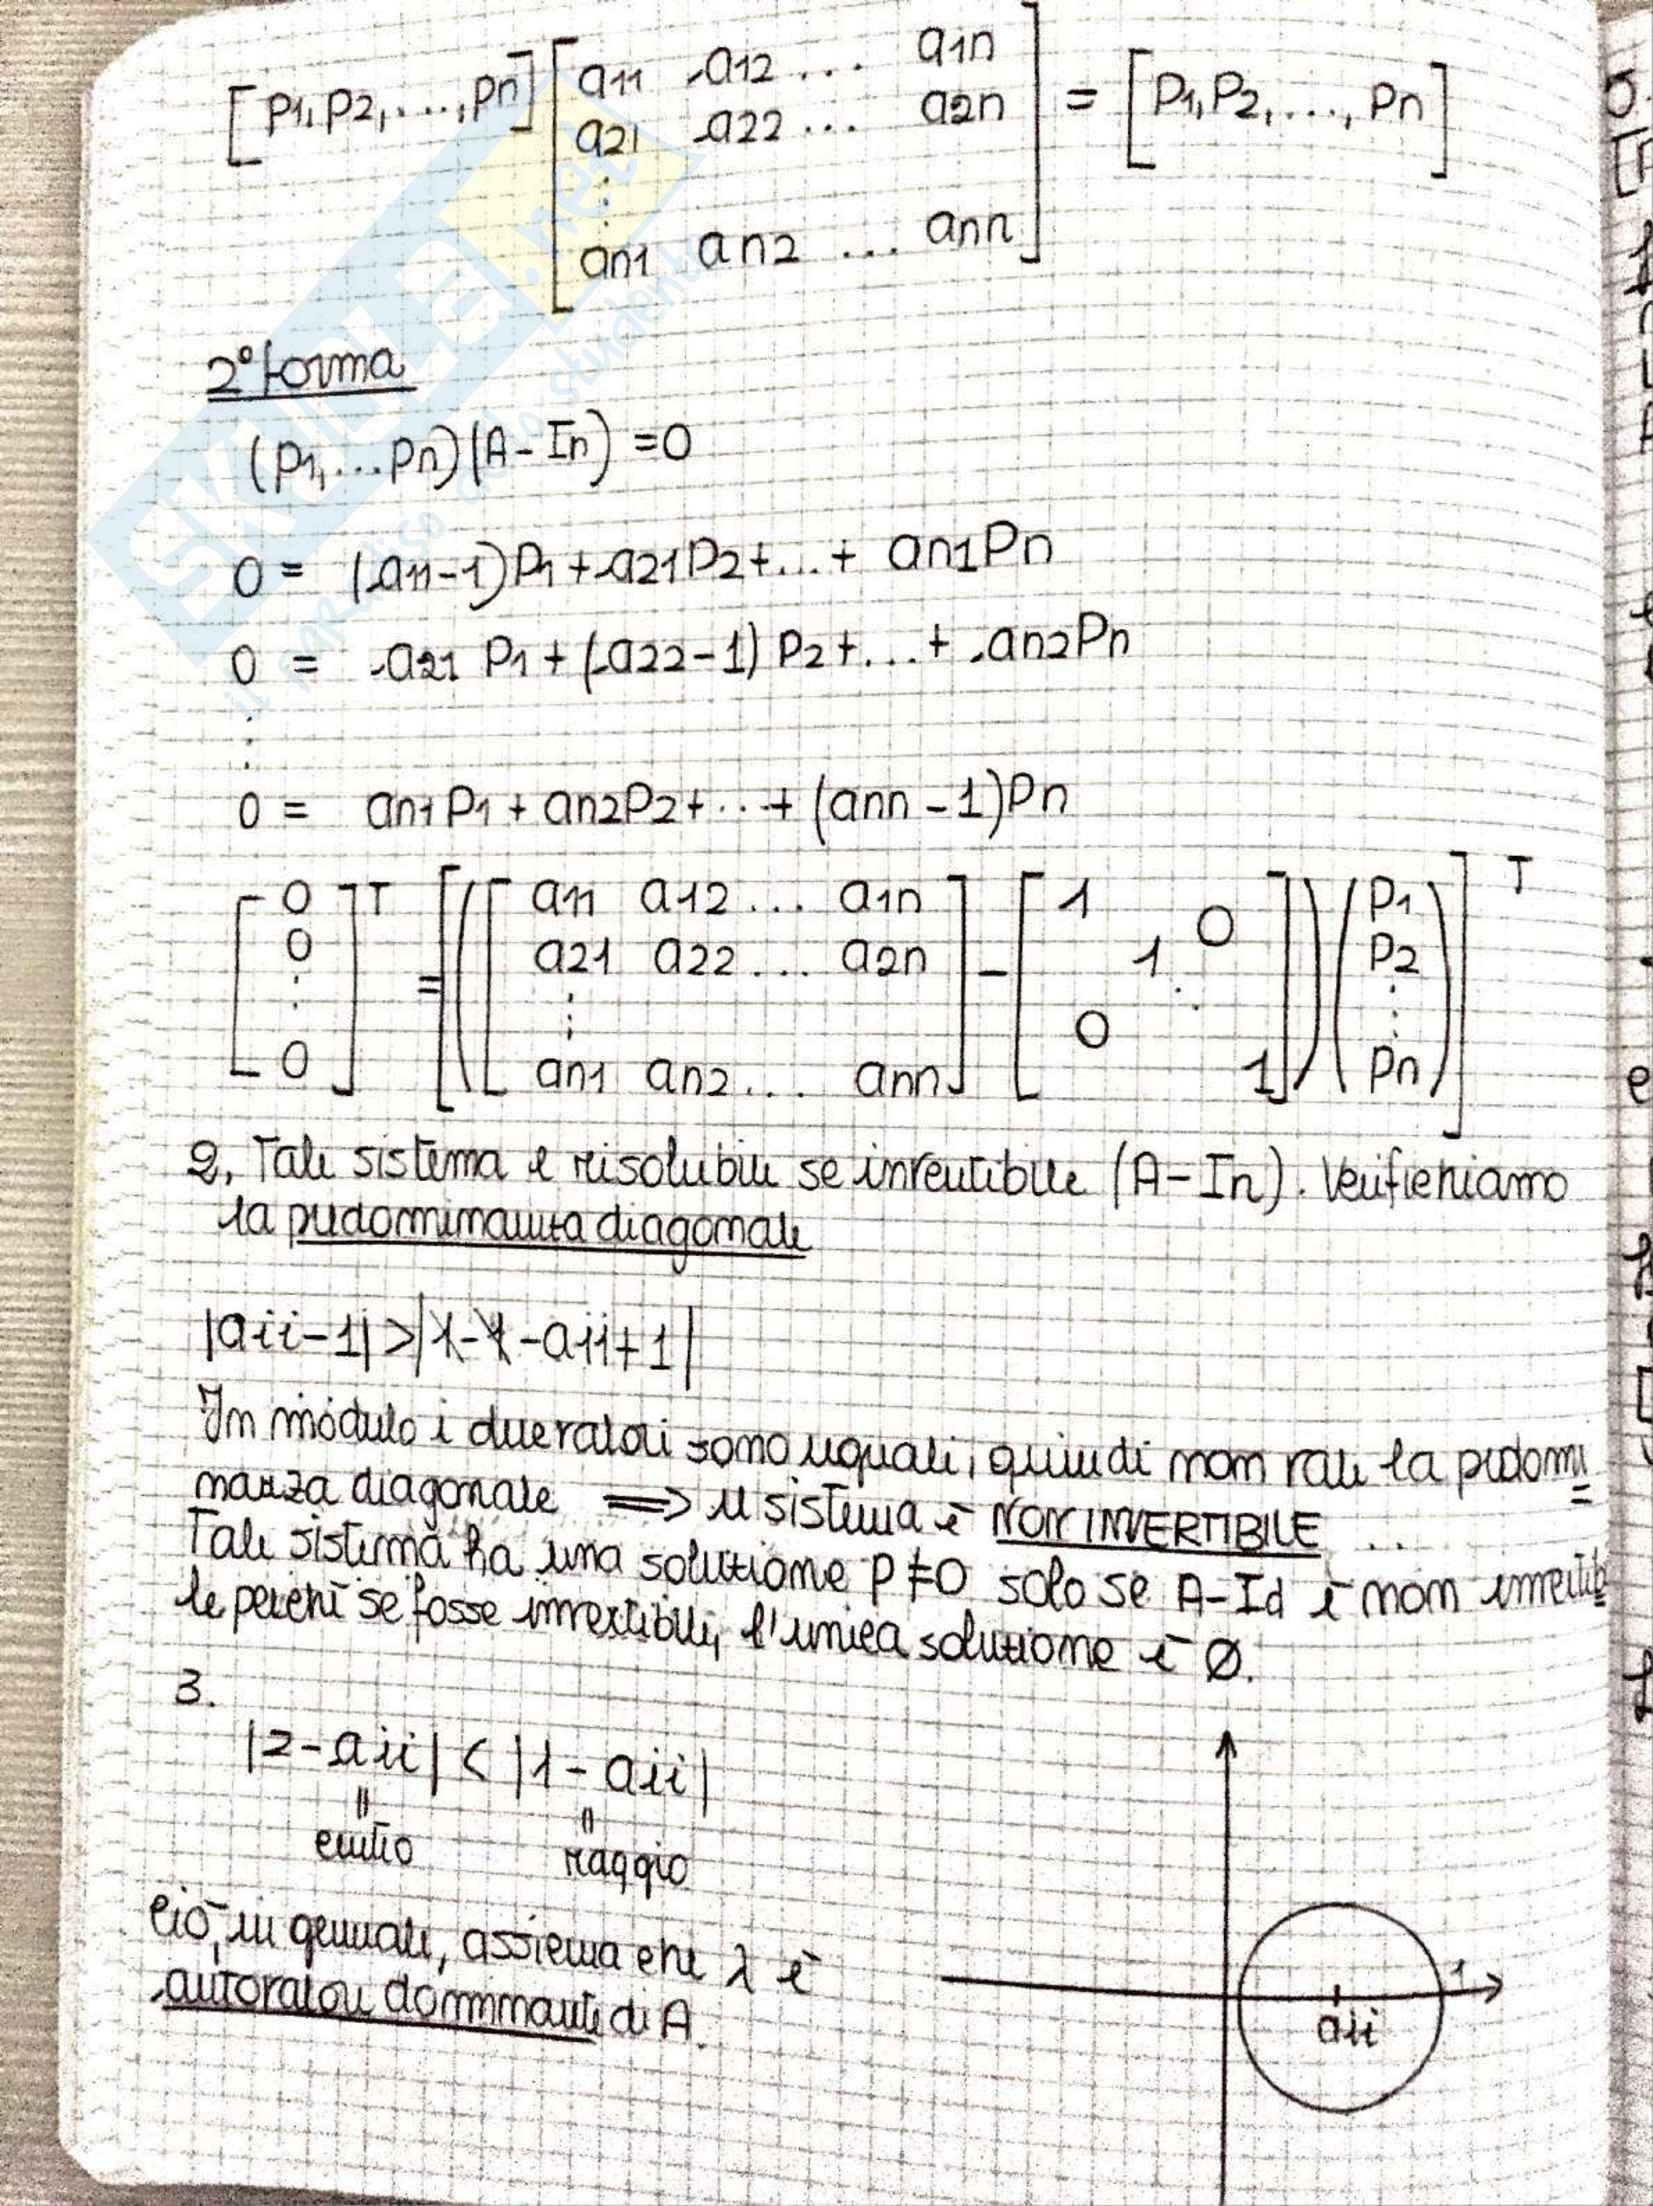 [P1, P2, ..., Pn] [a11 a12 ... a1n
a21 a22 ... a2n
⋮
an1 an2 ... ann] = [P1, P2, ..., Pn]
2° forma
(P1, ... Pn)(A - In) = 0
0 = (a11-1)P1 + a21P2 + ... + an1Pn
0 = a21 P1 + (a22-1) P2 + ... + an2Pn
⋮
0 = an1P1 + an2P2 + ... + (ann-1)Pn
[0 0 ⋮ 0]T = [([a11 a12 ... a1n
a21 a22 ... a2n
⋮
an1 an2 ... ann] - [1 0 1 ⋱ 0 1]) (P1 P2 ⋮ Pn)]T
2, Tale sistema è risolubile se invertibile (A-In). Verifichiamo
la predominanza diagonale
|aii-1| > |1-1-aii+1|
In modulo i due valori sono uguali, quindi non vale la predomi
nanza diagonale ⟹ il sistema è NON INVERTIBILE
Tale sistema ha una soluzione P≠0 solo se A-Id è non invertib
le perchè se fosse invertibile, l'unica soluzione è Ø.
3.
|2-aii| < |1-aii|
" "
centro raggio
Ciò, in generale, assicura che λ è
autovalore dominante di A.
1
aii
SKUOLA.net
il paradiso dello studente